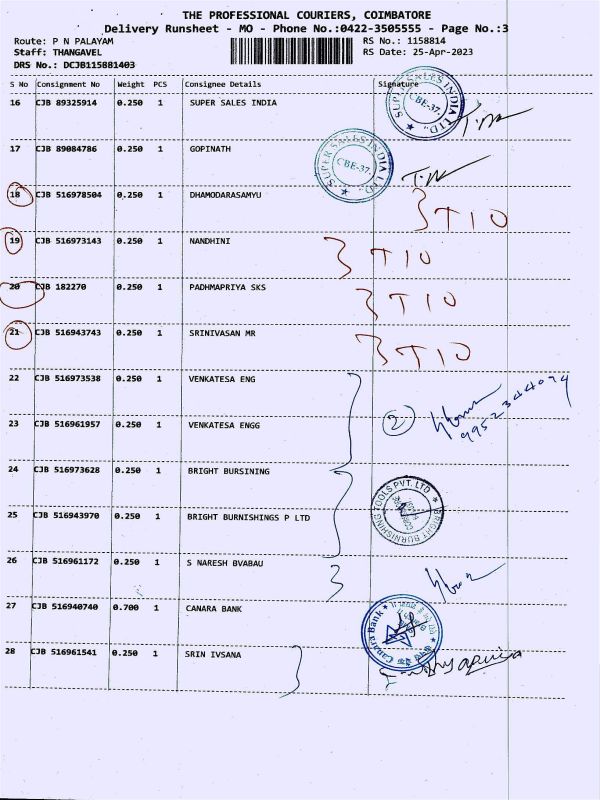 THE PROFESSIONAL COURIERS, COIMBATORE
Delivery Runsheet - MO - Phone No.:0422-3505555 - Page No.:3
Route: P N PALAYAM RS No.: 1158814
Staff: THANGAVEL RS Date: 25-Apr-2023
DRS No.: DCJB115881403
S No Consignment No Weight PCS Consignee Details Signature
16 CJB 89325914 0.250 1 SUPER SALES INDIA
SUPER SALES INDIA LTD., CBE-37.
17 CJB 89084786 0.250 1 GOPINATH
SUPER SALES INDIA LTD., CBE-37.
18 CJB 516978504 0.250 1 DHAMODARASAMYU
3 T10
19 CJB 516973143 0.250 1 NANDHINI
3 T10
20 CJB 182270 0.250 1 PADHMAPRIYA SKS
3 T10
21 CJB 516943743 0.250 1 SRINIVASAN MR
3 T10
22 CJB 516973538 0.250 1 VENKATESA ENG
2
9952344074
23 CJB 516961957 0.250 1 VENKATESA ENGG
24 CJB 516973628 0.250 1 BRIGHT BURSINING
25 CJB 516943970 0.250 1 BRIGHT BURNISHINGS P LTD
BRIGHT BURNISHING TOOLS PVT. LTD
26 CJB 516961172 0.250 1 S NARESH BVABAU
27 CJB 516940740 0.700 1 CANARA BANK
Canara Bank
28 CJB 516961541 0.250 1 SRIN IVSANA